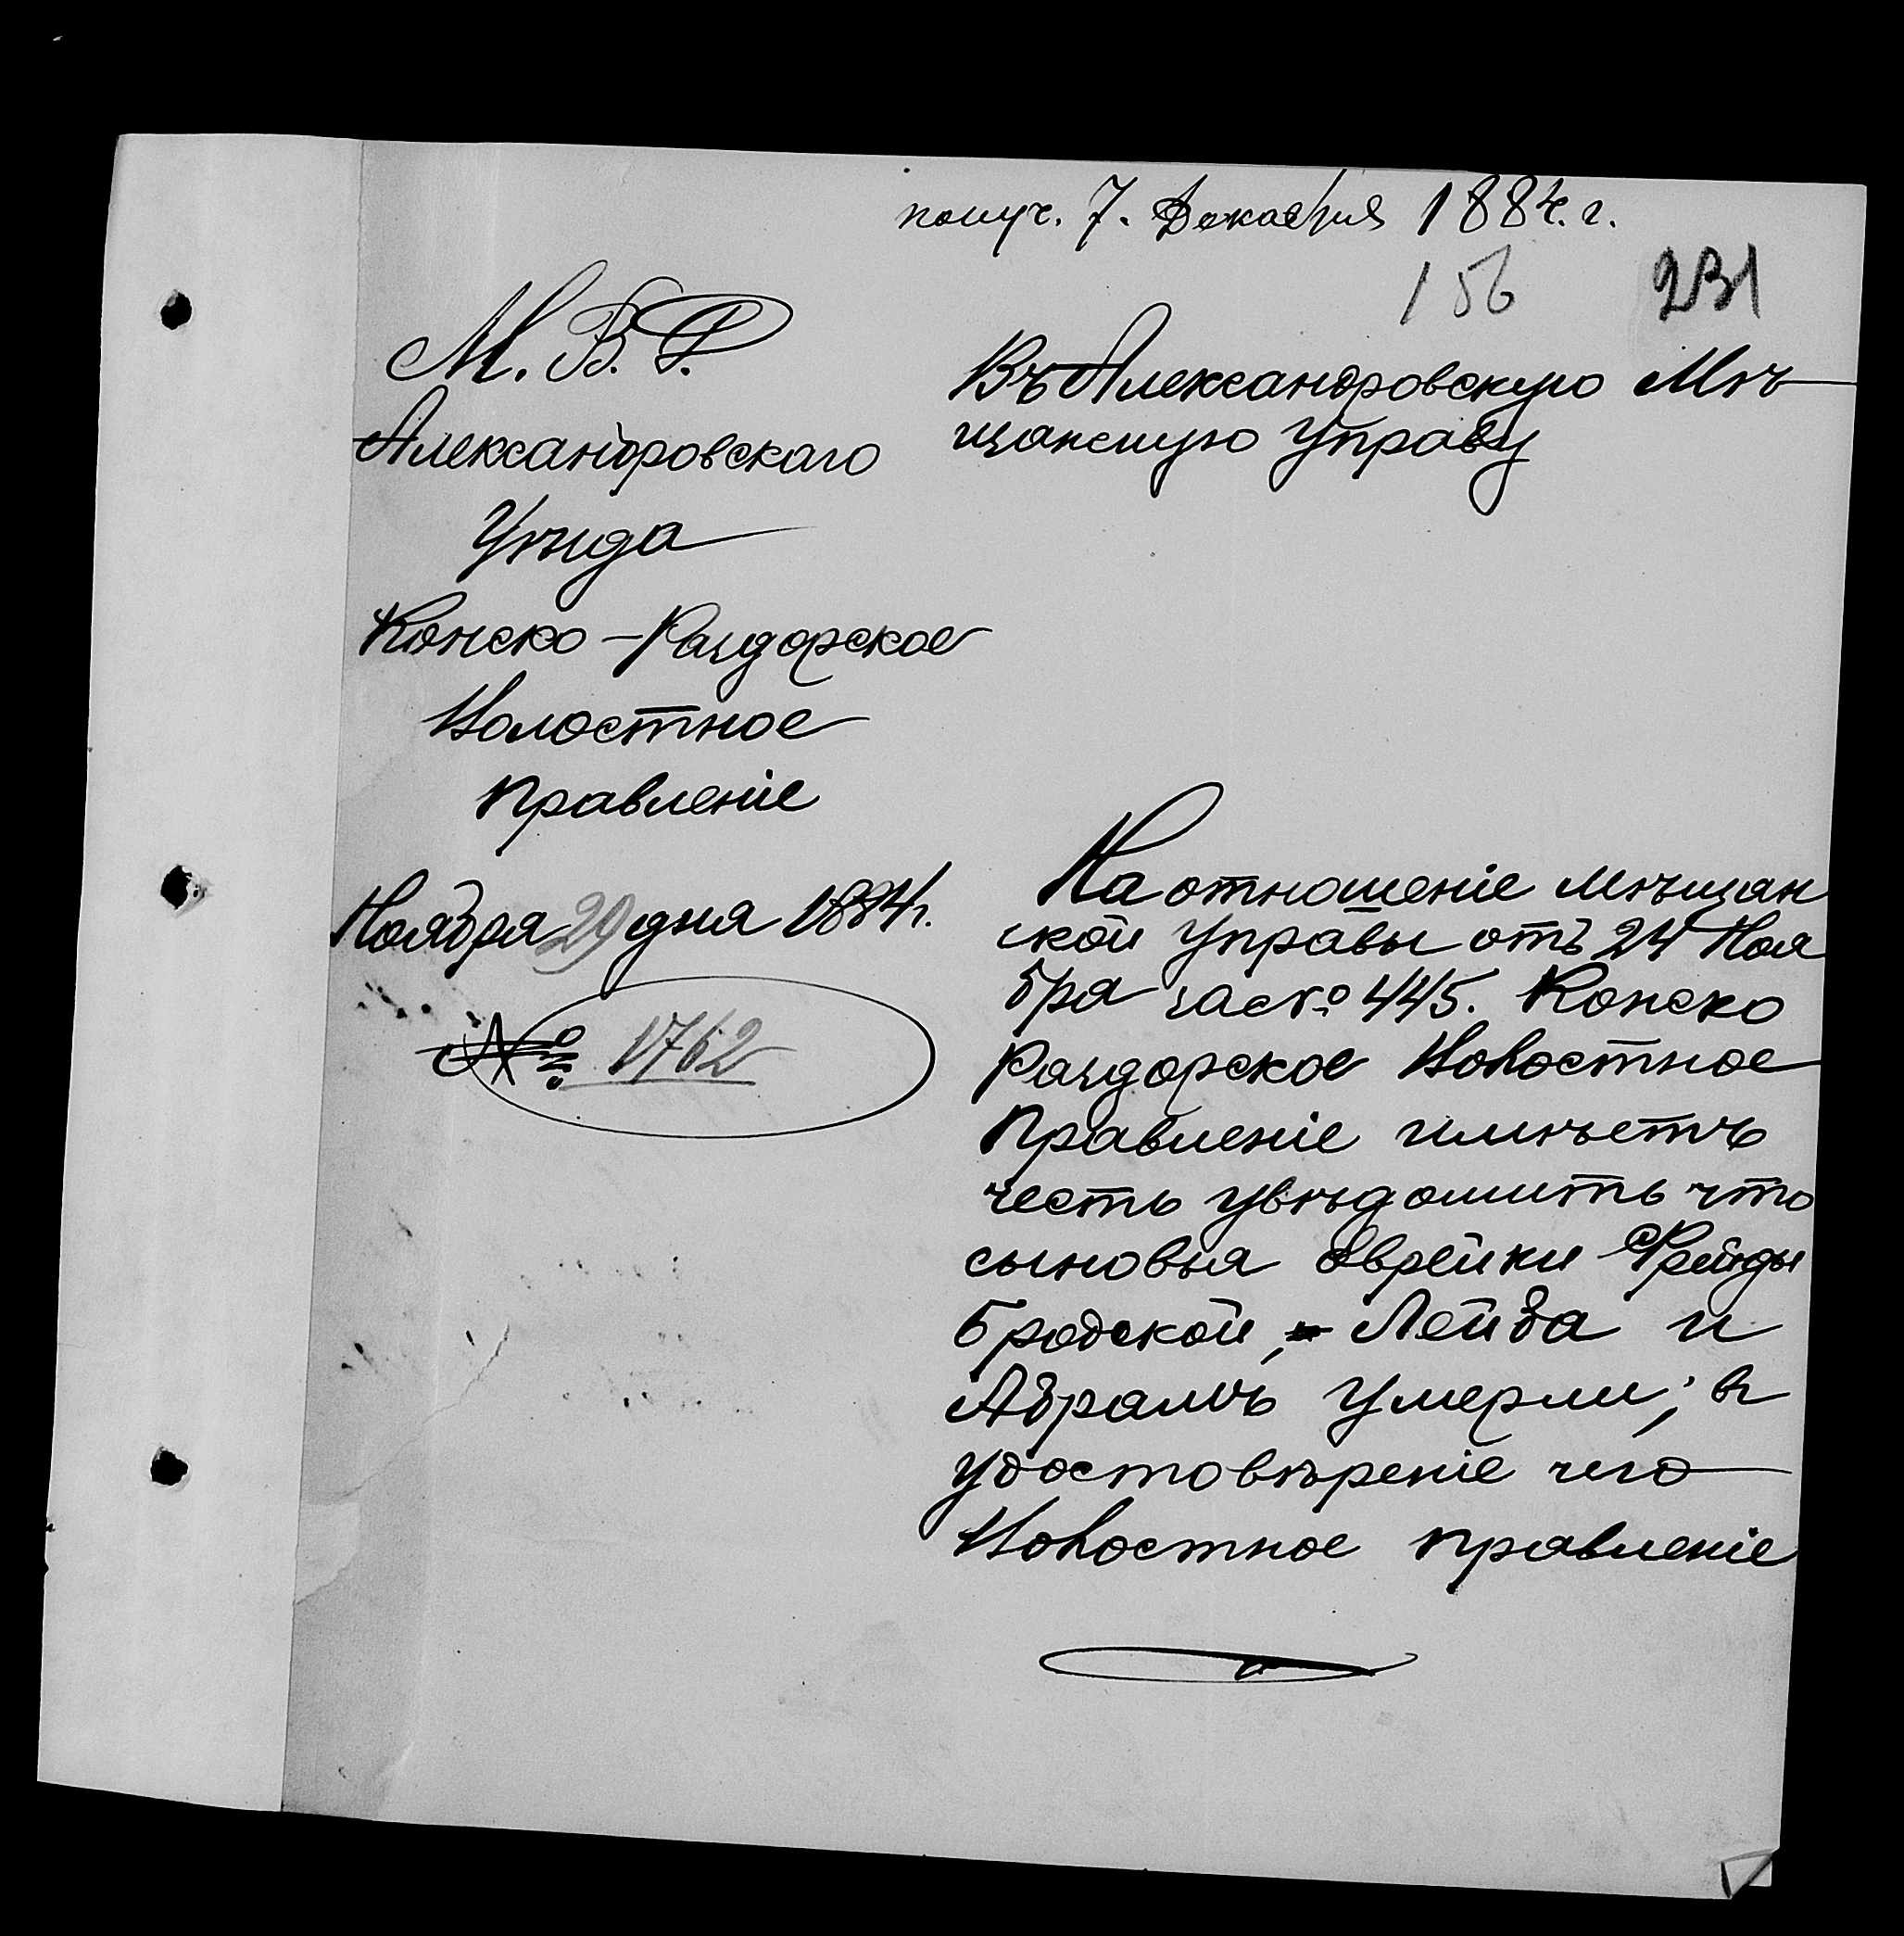 получ. 7. Декабря 1884. г.
156 231
М. В. Д.
Александровскаго
Уѣзда
Конско-Раздорское
Волостное
Правленіе
Ноября 29 дня 1884 г.
№ 1762
Въ Александровскую Мѣ-
щанскую Управу
На отношеніе Мѣщан
ской Управы отъ 24 Ноя
бря за № 445. Конско
Раздорское Волостное
Правленіе имѣетъ
честь увѣдомить что
сыновья Еврейки Фрейды
Бродской, Лейба и
Абрамъ умерли; въ
удостовѣреніе чего
Волостное Правленіе